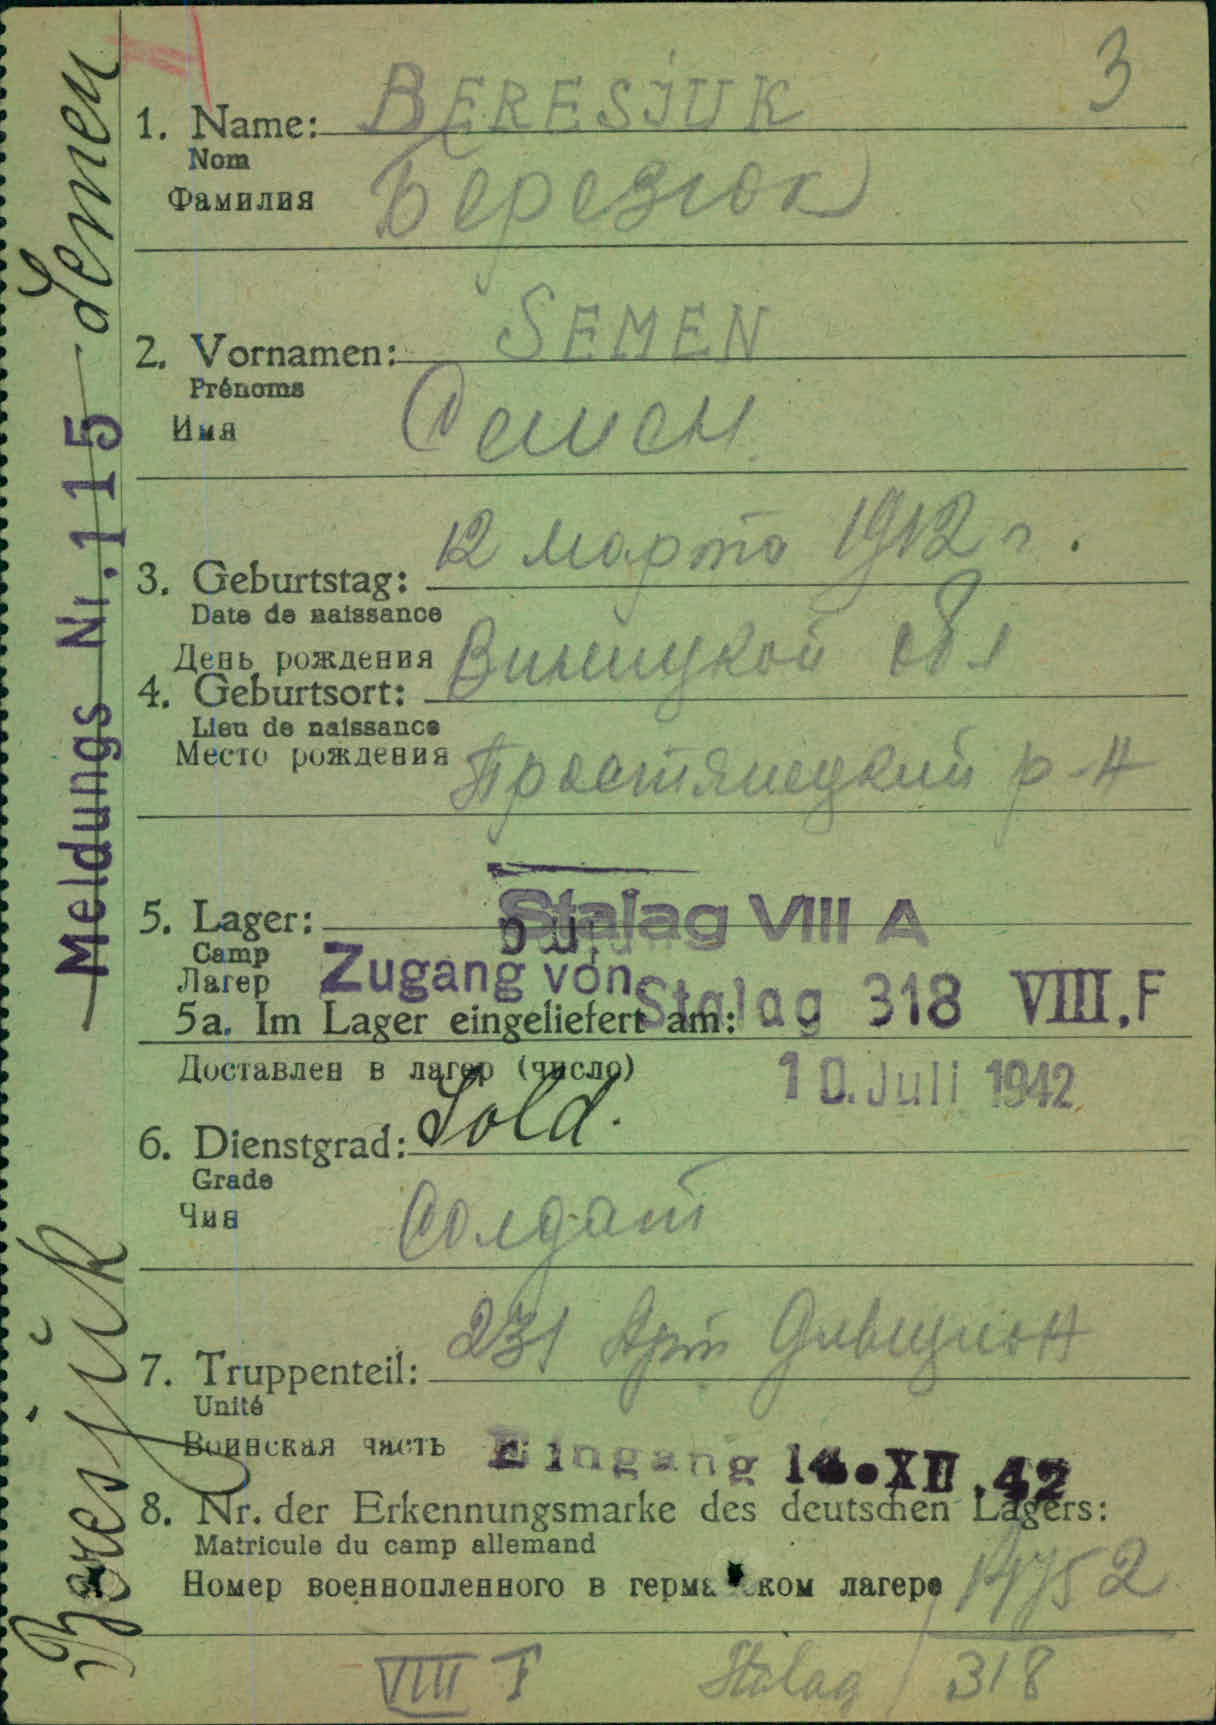 3
1. Name: BERESJUK
Nom
Фамилия Березюк
2. Vornamen: SEMEN
Prénoms
Имя Семен
12 марта 1912 г.
3. Geburtstag:
Date de naissance
День рождения
Виницкой обл
4. Geburtsort:
Lieu de naissance
Место рождения
Тростянецкий р-н
5. Lager: Stalag VIII A
Camp
Лагер Zugang von Stalag 318 VIII.F
5a. Im Lager eingeliefert am:
Доставлен в лагер (число) 10. Juli 1942
6. Dienstgrad: Sold.
Grade
Чин Солдат
231 Арт
7. Truppenteil:
Unité
Воинская часть Eingang XII.42
8. Nr. der Erkennungsmarke des deutschen Lagers:
Matricule du camp allemand
Номер военнопленного в ком лагере 14752
VIII F Stalag 318
Beresjuk Semen
Meldungs Nr. 115